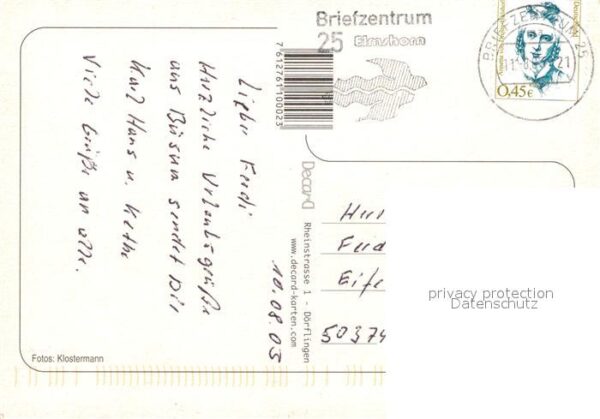 Briefzentrum
25 Elmshorn
BRIEFZENTRUM 25
21
Deutschland
0,45€
7612761100023
Lieber Ferdi
Herzliche Urlaubsgrüße
aus Büsum sendet Dir
Karl Hans u. Käthe
Viele Grüße an alle.
10.08.03
Decard
Rheinstrasse 1 - Dörflingen
www.decard-karten.com
Eife
50374
privacy protection
Datenschutz
Fotos: Klostermann